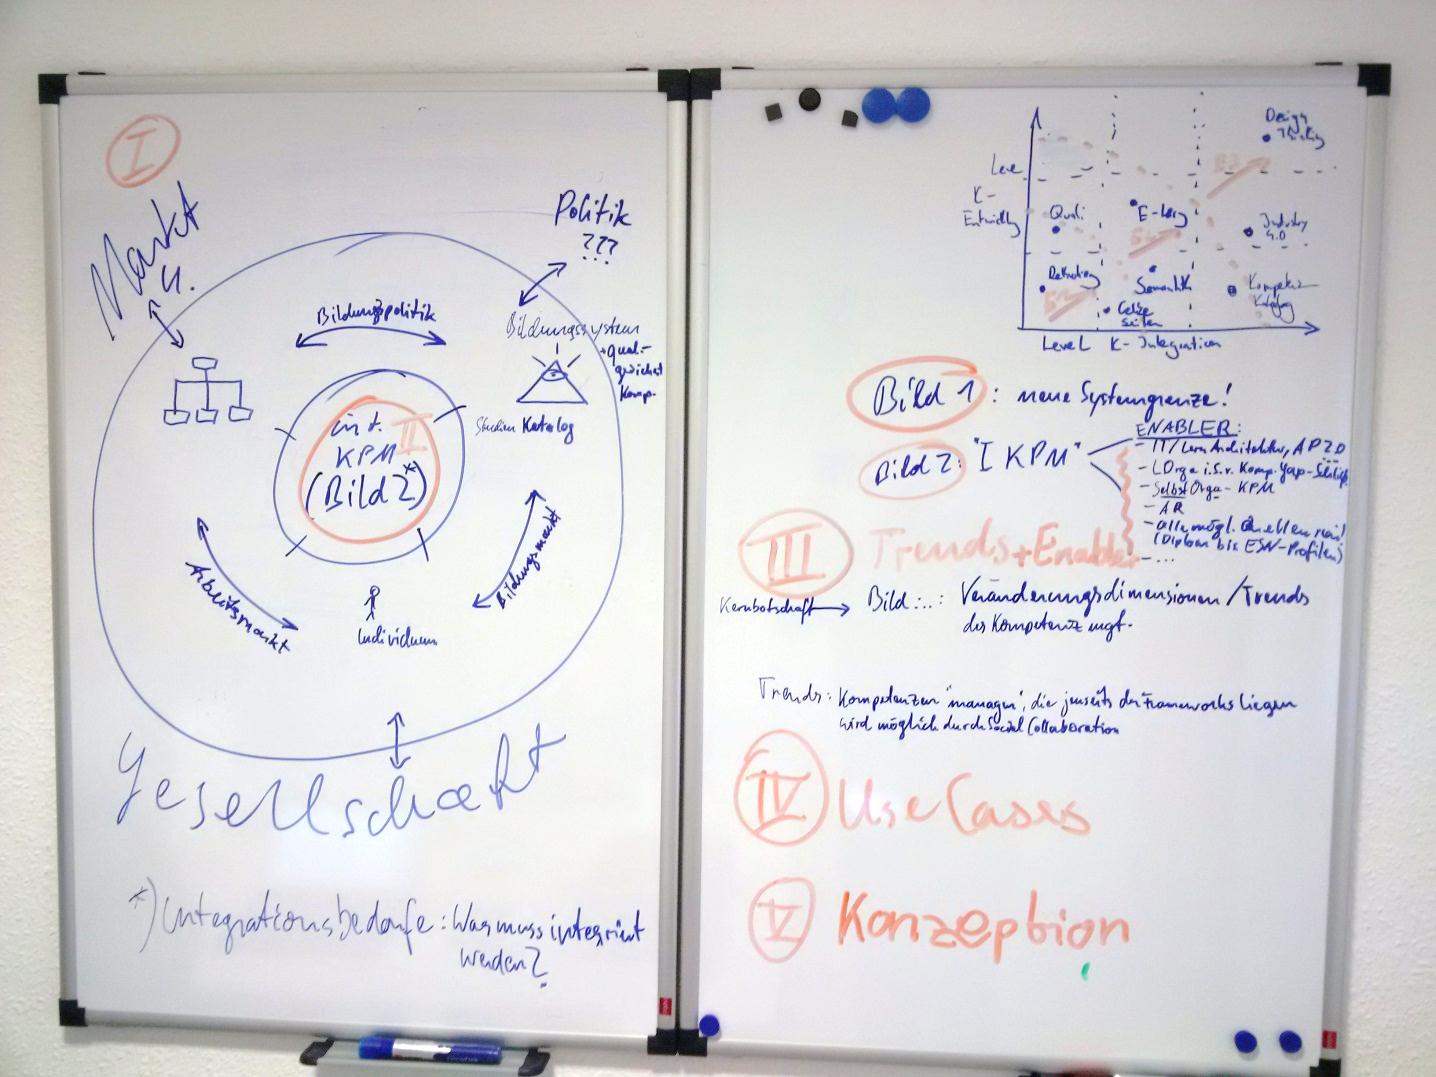 I
Markt
Politik
???
Bildungspolitik
Bildungssystem
+ quali-
Komp.
Studien Katalog
int.
II
KPM
(Bild 2*)
Arbeitsmarkt
Bildungsmarkt
Individuum
Gesellschaft
*) Integrationsbedarfe: Was muss integriert
werden?
Design
Thinking
Level
K-
Entwicklg
Quali
E-Lerng
Industry
4.0
Semantik
Gelbe
Seiten
Kompetenz
Katalog
Level K-Integration
Bild 1: neue Systemgrenze!
Bild 2: "I KPM"
ENABLER:
- IT/Lern Architektur, AP 2.0
- LOrga i.S.v. Komp. Gap-
- SelbstOrga- KPM
- AR
- alle mögl. Quellen rein!
(Diplom bis ESN-Profilen)
- ...
III Trends+Enabler
Kernbotschaft → Bild ...: Veränderungsdimensionen/Trends
des Kompetenzmgt.
Trends: Kompetenzen "managen", die jenseits des Frameworks liegen
wird möglich durch Social Collaboration
IV Use Cases
V Konzeption